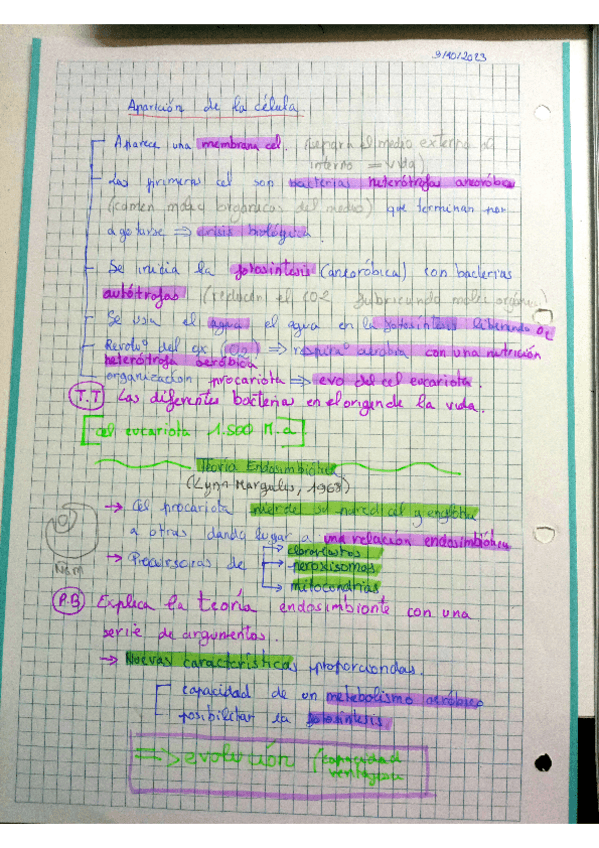 9/10/2023
Aparición de la célula
Aparece una membrana cel. (separa el medio externo del
interno = vida)
Las primeras cel son bacterias heterótrofas anaeróbicas
(comen moléc orgánicas del medio) que terminan por
agotarse ⇒ crisis biológica.
Se inicia la fotosíntesis (anaeróbica) con bacterias
autótrofas (reducen el CO2 fabricando moléc orgánicas)
Se usa el agua el agua en la fotosíntesis liberando O2
Revolu° del ox (O2) ⇒ respira° aerobia con una nutrición
heterótrofa aeróbica.
organización procariota ⇒ evo del cel eucariota.
T.T Las diferentes bacterias en el origen de la vida.
cel eucariota 1.500 M.a
Teoría Endosimbiótica
(Lynn Margules, 1968)
→ Cel procariota pierde su pared cel y engloba
a otras dando lugar a una relación endosimbiótica
→ Precursoras de → cloroplastos
→ peroxisomas
→ mitocondrias
P.B Explica la teoría endosimbionte con una
serie de argumentos.
→ Nuevas características proporciondas.
capacidad de un metabolismo aeróbico
posibilitar la fotosíntesis
⇒ evolución (capacidad
ventajosa